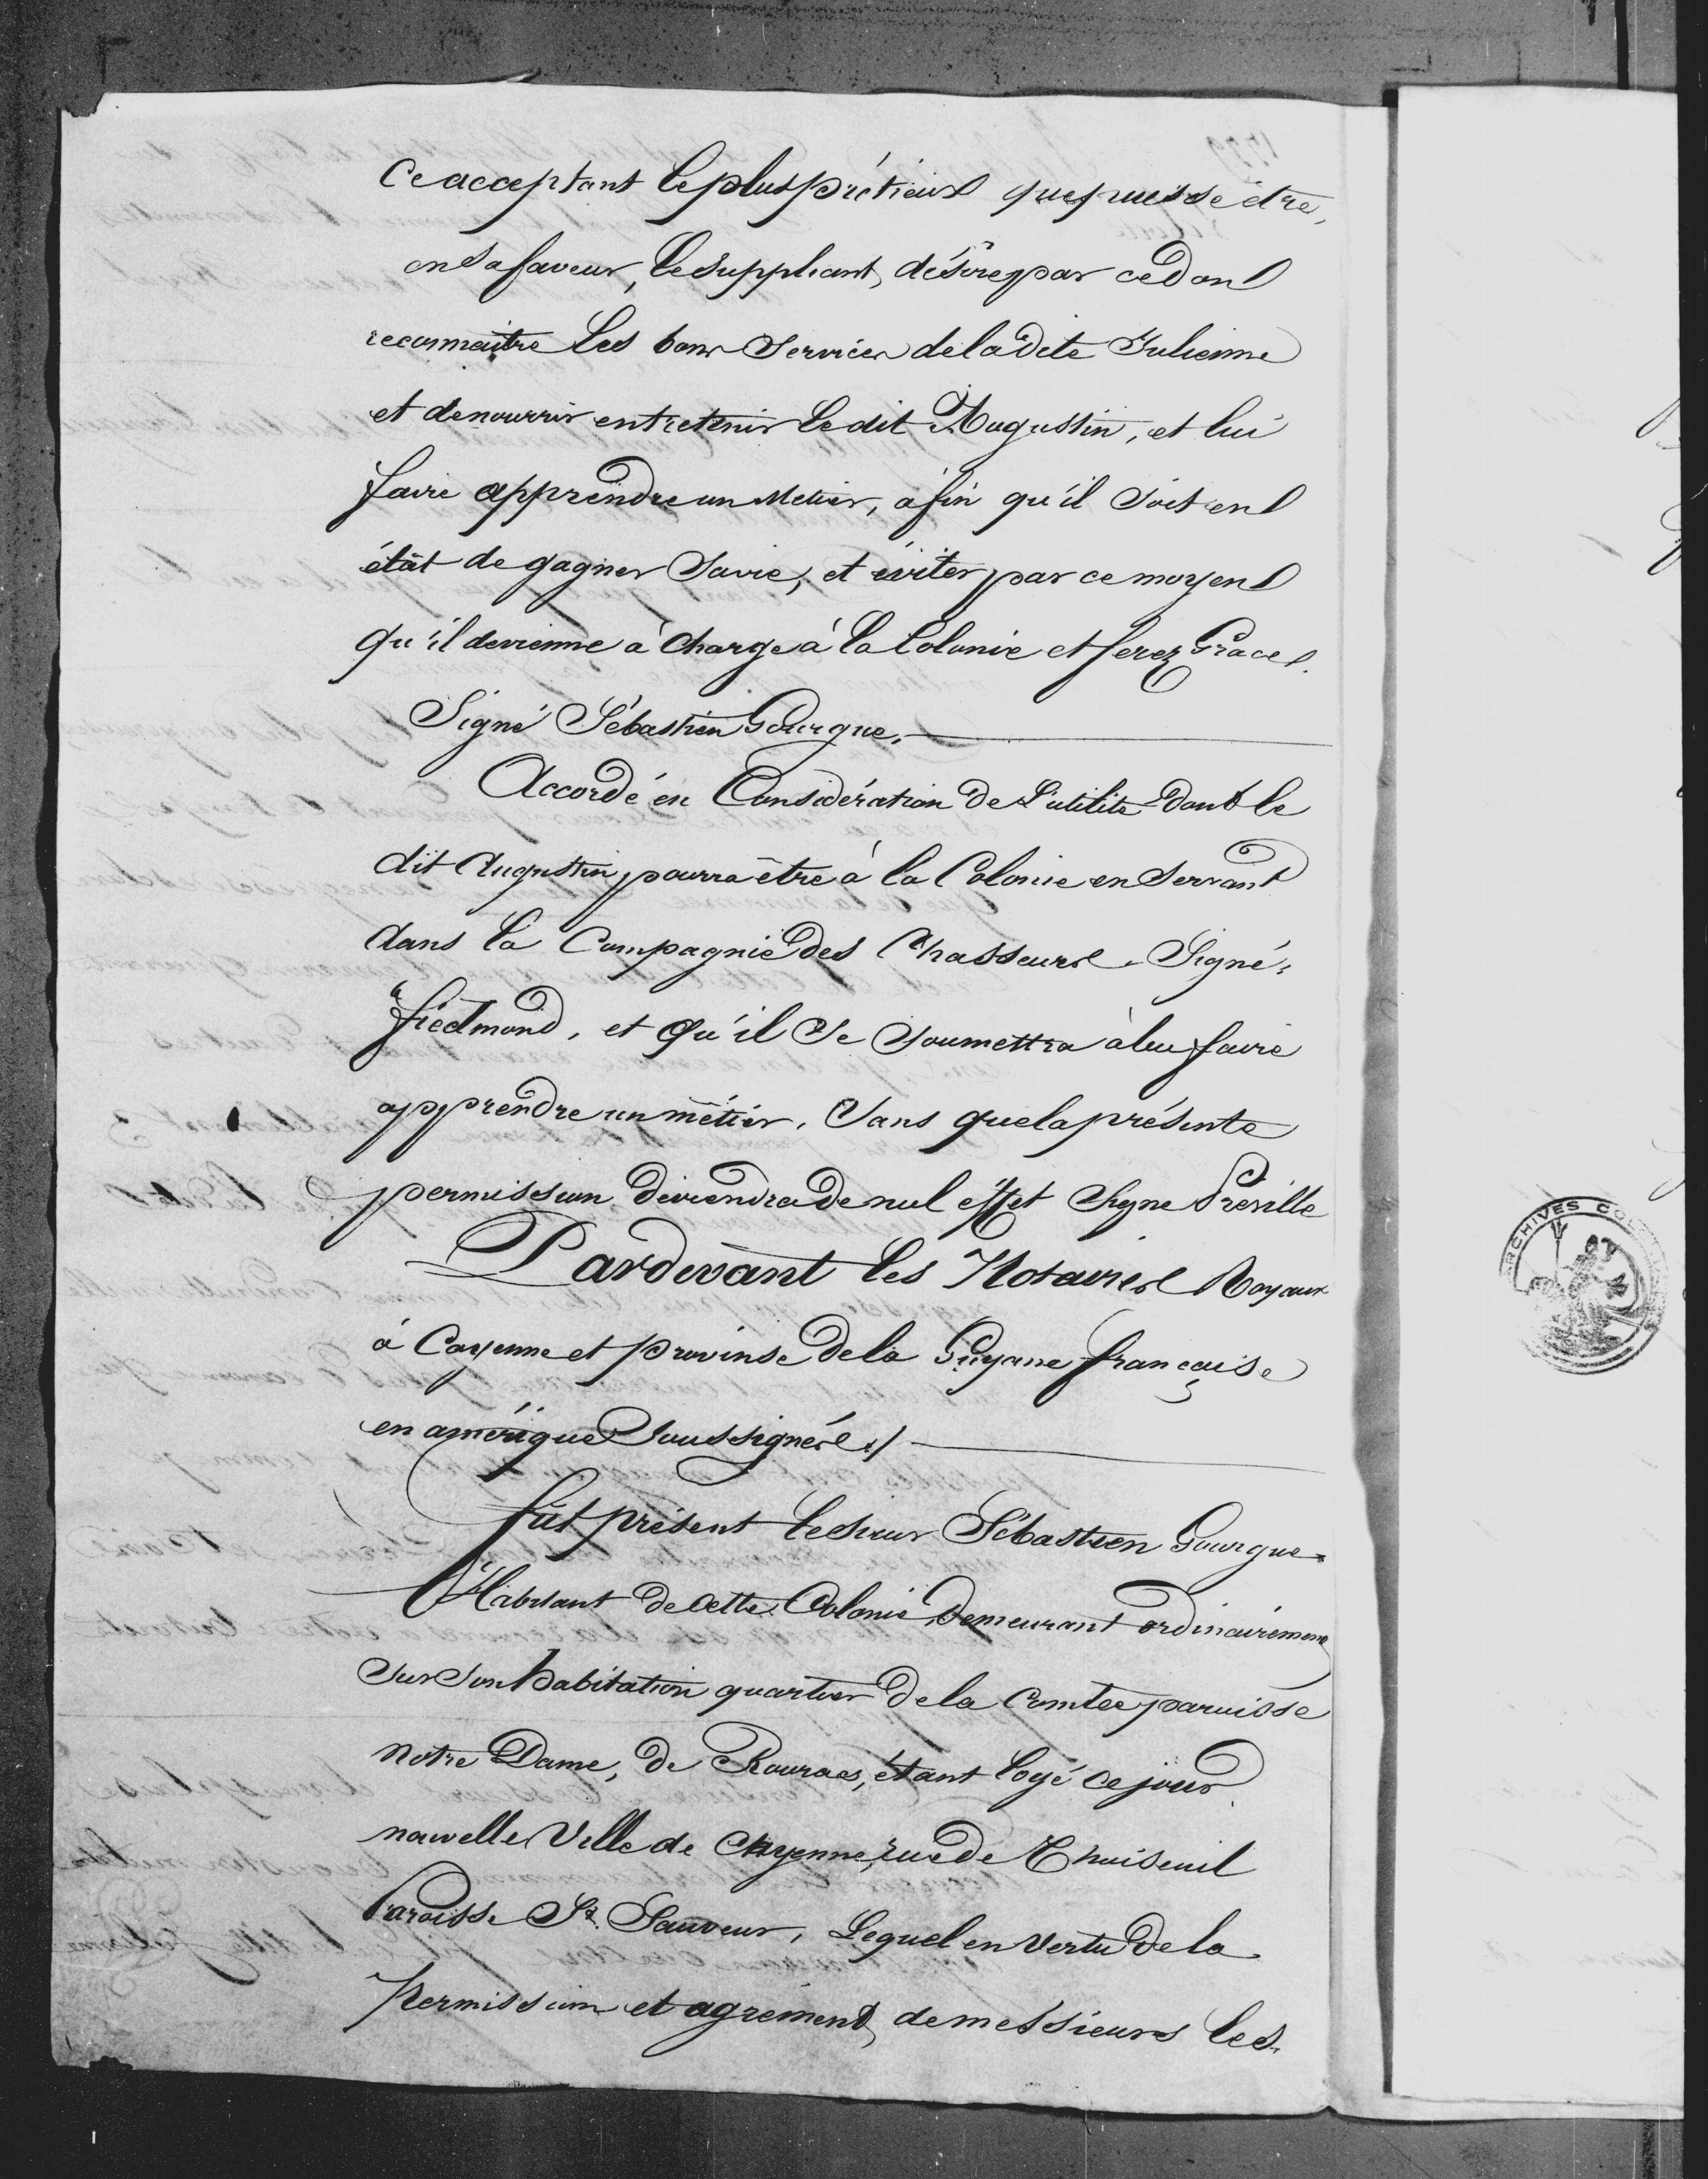 Ce acceptant le plus prétieux que puisse être,
en sa faveur, le suppliant, désire par ce don
reconnaitre les bons Services de la dite Julienne
et de nourrir entretenir le dit Augustin, et lui
faire apprendre un Metier, afin qu'il soit en
état de gagner Savie, et éviter par ce moyen
qu'il devienne à Charge à la Colonie et ferez Grace.
Signé Sébastien Gourgue.
Accordé en Considération de L'utilité dont le
dit Augustin pourra être à la Colonie en Servant
dans la Compagnie des Chasseurs. Signé,
fiedmond, et qu'il Se Soumettra à lui faire
apprendre un métier. Sans que la présente
permission deviendra de nul effet Signé Préville
Pardevant les Notaires Royaux
à Cayenne et provinse de la Guyane française
en amérique Soussignés
fut présent le Sieur Sébastien Gourgue
Habitant de cette Colonie Demeurant ordinairement
Sur Son habitation quartier de la Comtée paroisse
Notre Dame, de Rouraes, étant logé ce jour
nouvelle Ville de Cayenne, rue de Choiseuil
Paroisse St. Sauveur, Lequel en Vertu de la
Permission et agrément, de messieurs les
ARCHIVES COL